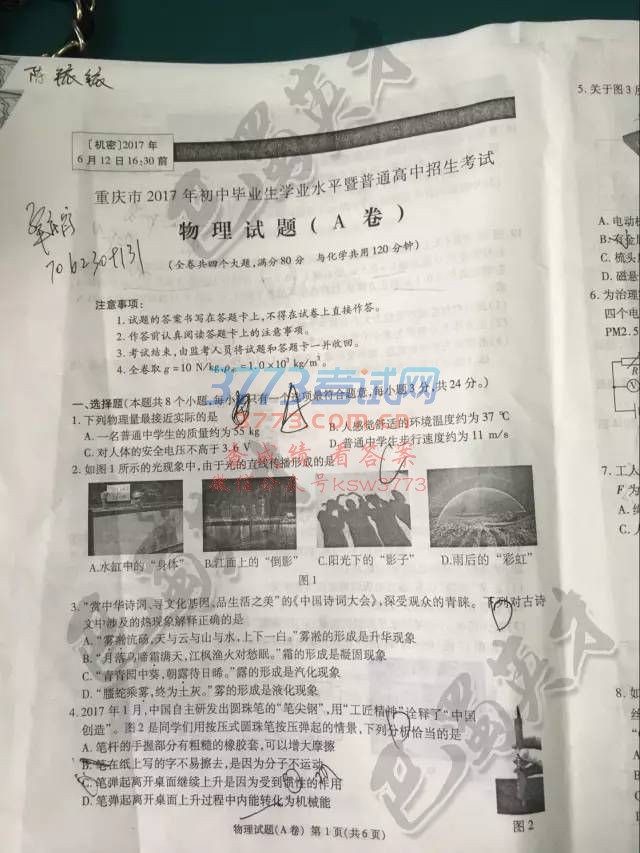 [机密]2017年
6月12日16:30前
重庆市2017年初中毕业生学业水平暨普通高中招生考试
物理试题(A卷)
(全卷共四个大题,满分80分 与化学共用120分钟)
注意事项:
1.试题的答案书写在答题卡上,不得在试卷上直接作答。
2.作答前认真阅读答题卡上的注意事项。
3.考试结束,由监考人员将试题和答题卡一并收回。
4.全卷取g=10 N/kg,ρ水=1.0×10³ kg/m³。
3773考试网
3773.com.cn
查成绩 看答案
微信公众号ksw3773
一、选择题(本题共8个小题,每小题只有一个选项最符合题意,每小题3分,共24分。)
1.下列物理量最接近实际的是
B A
A.一名普通中学生的质量约为55 kg
B.人感觉舒适的环境温度约为37 ℃
C.对人体的安全电压不高于3.6 V
D.普通中学生步行速度约为11 m/s
2.如图1所示的光现象中,由于光的直线传播形成的是
C
A.水缸中的“身体”
B.江面上的“倒影”
C.阳光下的“影子”
D.雨后的“彩虹”
图1
3.“赏中华诗词、寻文化基因、品生活之美”的《中国诗词大会》,深受观众的青睐。下列对古诗
文中涉及的热现象解释正确的是
D
A.“雾凇沆砀,天与云与山与水,上下一白。”雾凇的形成是升华现象
B.“月落乌啼霜满天,江枫渔火对愁眠。”霜的形成是凝固现象
C.“青青园中葵,朝露待日晞。”露的形成是汽化现象
D.“螣蛇乘雾,终为土灰。”雾的形成是液化现象
4.2017年1月,中国自主研发出圆珠笔的“笔尖钢”,用“工匠精神”诠释了“中国
创造”。图2是同学们用按压式圆珠笔按压弹起的情景,下列分析恰当的是
A.笔杆的手握部分有粗糙的橡胶套,可以增大摩擦
B.笔在纸上写的字不易擦去,是因为分子不运动
C.笔弹起离开桌面继续上升是因为受到惯性的作用
D.笔弹起离开桌面上升过程中内能转化为机械能
图2
物理试题(A卷) 第1页(共6页)
5.关于图3
A.电动机
C.梳头
D.磁
6.为治理
四个电
PM2.5
R
V
7.工人
F为
A.
C.
8.如
巴蜀英才